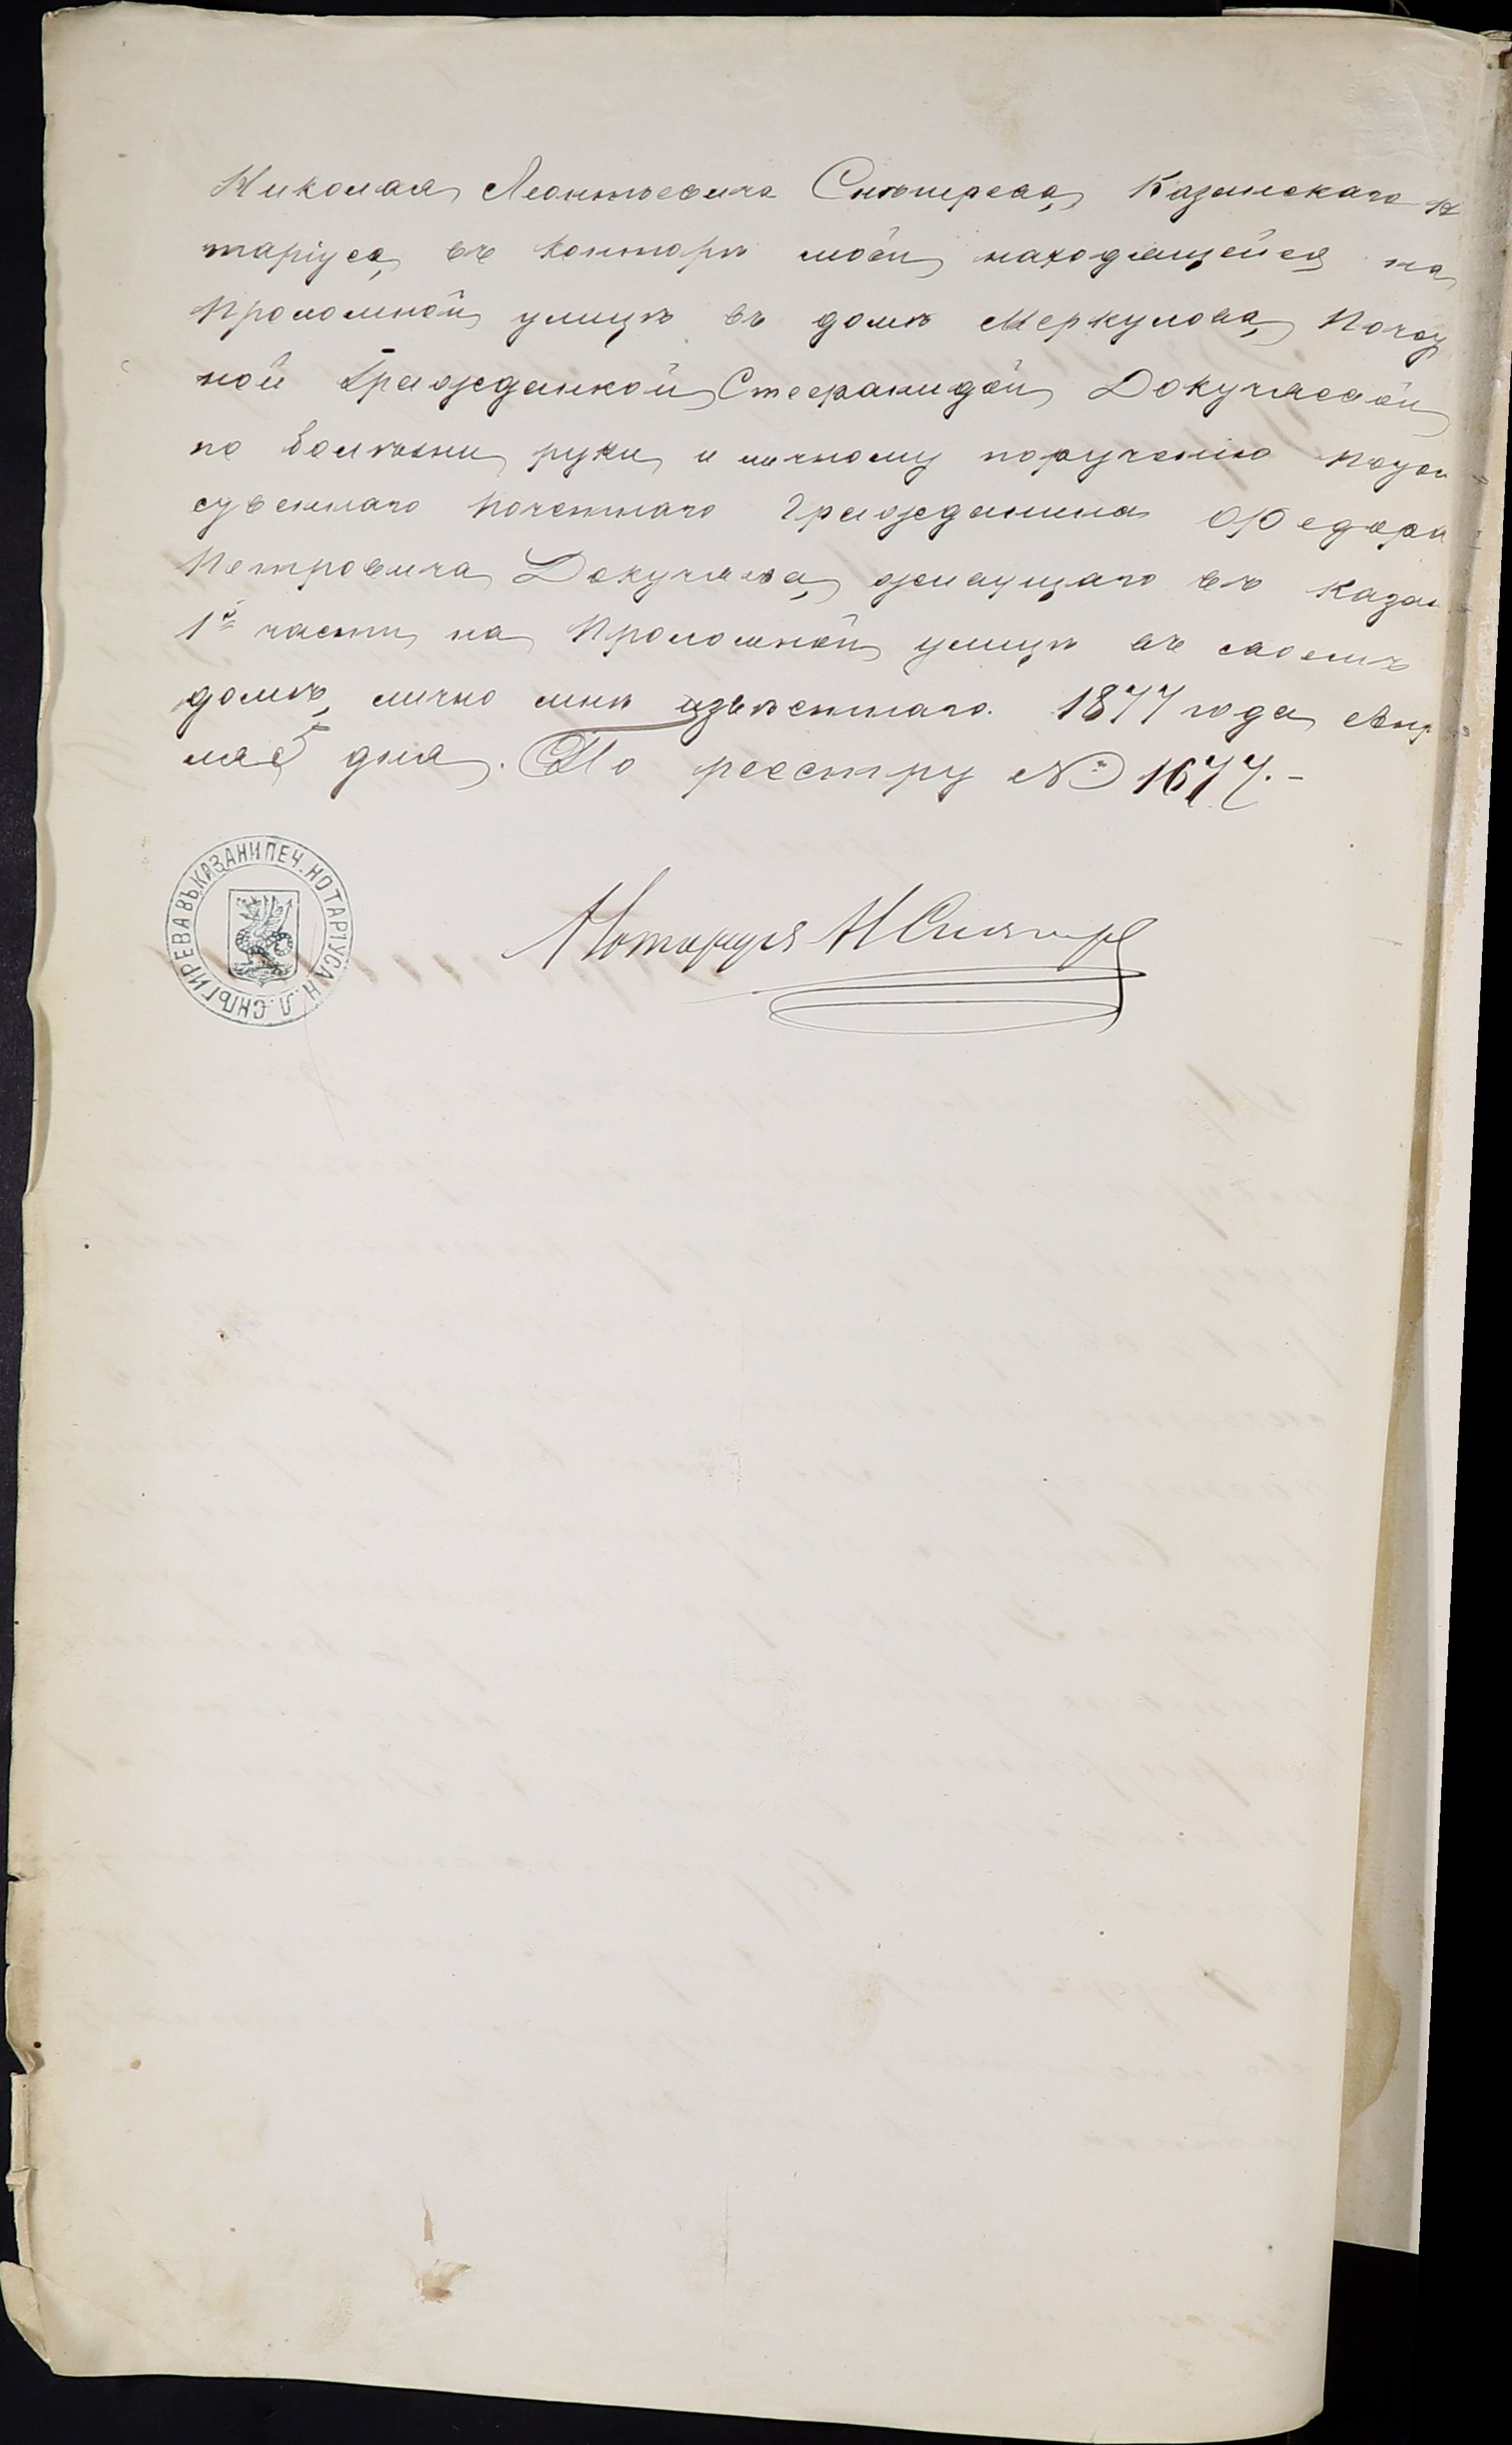 Николая Леонтьевича Снѣгирева, Казанскаго Но
таріуса, въ конторѣ моей, находящейся на
Проломной улицѣ въ домѣ Меркулова, Почет
ной Гражданкой Стефанидой Докучаевой
по болѣзни руки и личному порученію Потом
ственнаго Почетнаго Гражданина Ѳедора
Петровича Докучаева, живущаго въ Казани
1й части, на Проломной улицѣ въ своемъ
домѣ, лично мнѣ извѣстнаго. 1877 года Апрѣ
ля 5 дня. По реестру № 1677.-
ПЕЧ. НОТАРІУСА Н. Л. СНѢГИРЕВА ВЪ КАЗАНИ
Нотаріусъ Н Снѣгире